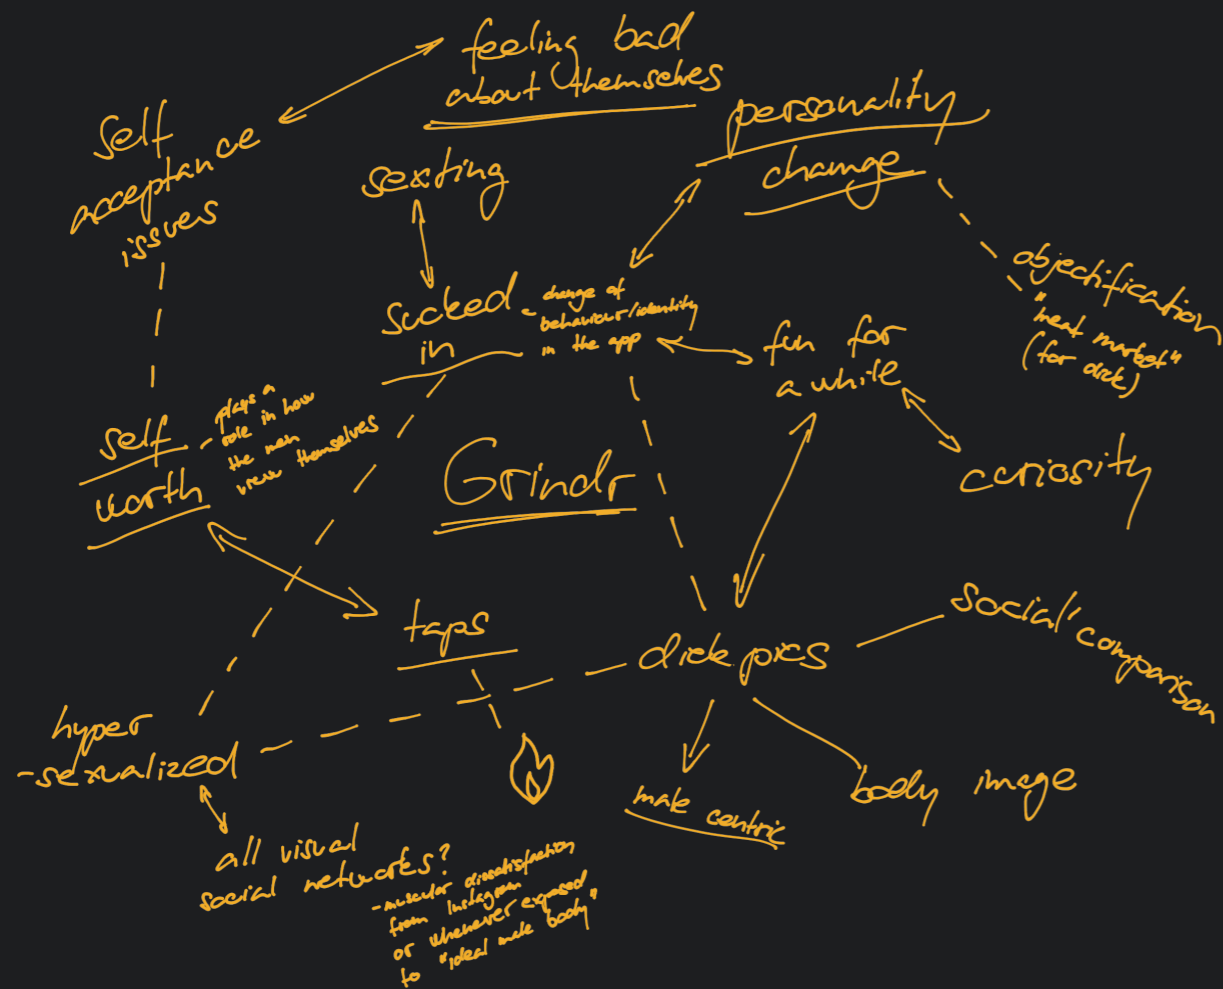 feeling bad
about themselves
self
acceptance
issues
sexting
personality
change
objectification
"meat market"
(for dick)
sucked
in
- change of
behaviour/identity
in the app
fun for
a while
curiosity
self
worth
- plays a
role in how
the men
view themselves
Grindr
taps
dick pics
social comparison
hyper
-sexualized
male centric
body image
all visual
social networks?
- muscular dissatisfaction
from Instagram
or whenever exposed
to "ideal male body"